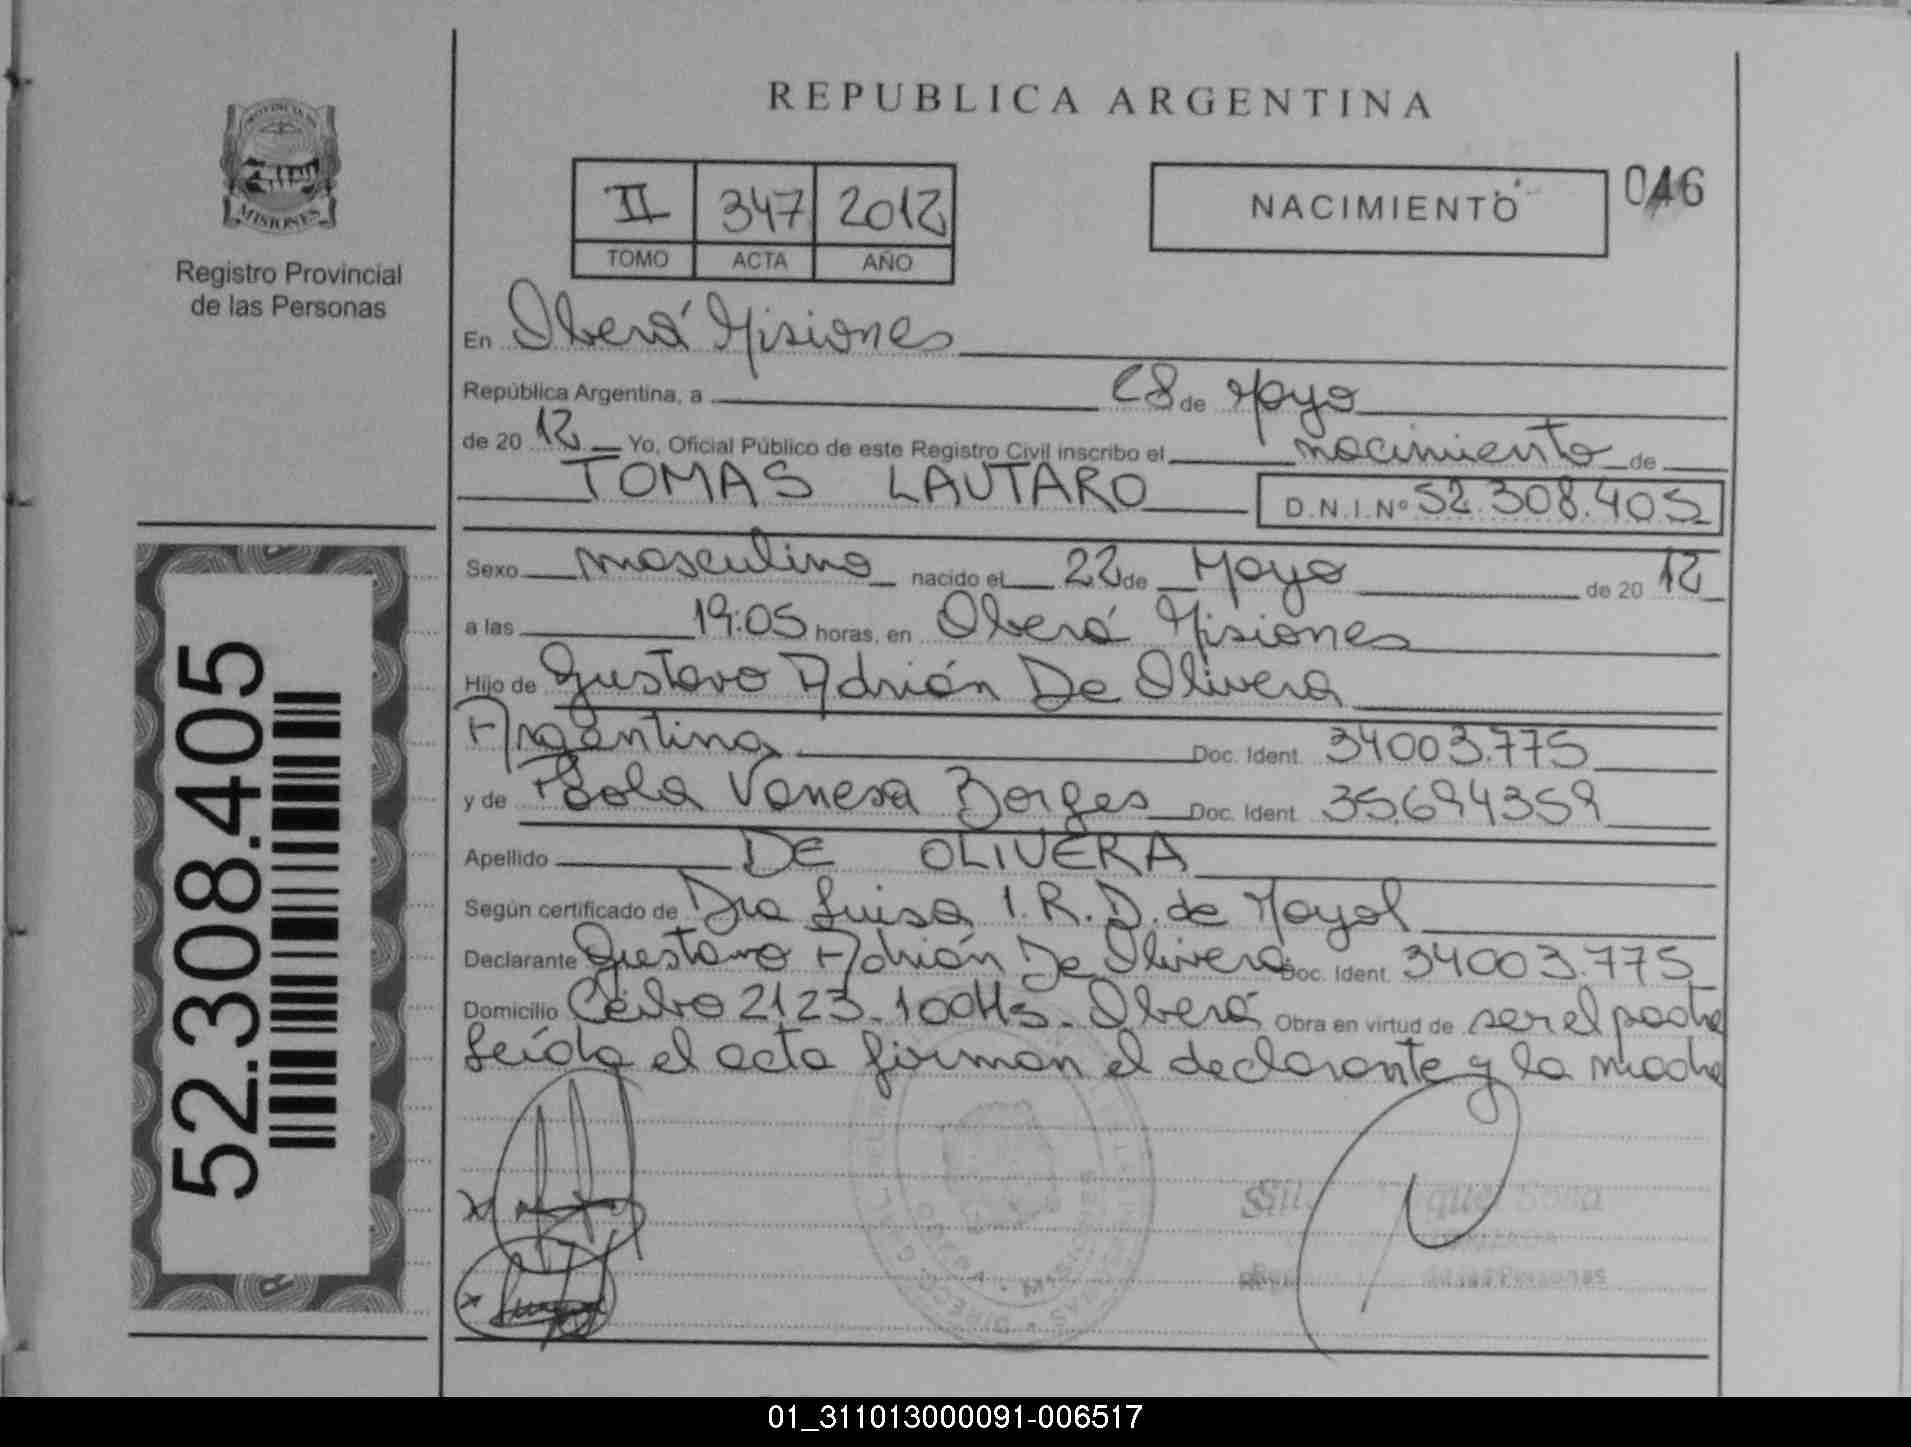 REPUBLICA ARGENTINA
PROVINCIA DE
MISIONES
Registro Provincial
de las Personas
II 347 2012
TOMO ACTA AÑO
NACIMIENTO
046
En Oberá Misiones
República Argentina, a 28 de Mayo
de 20 12 Yo, Oficial Público de este Registro Civil inscribo el nacimiento de
TOMAS LAUTARO D.N.I.Nº 52.308.405
Sexo masculino nacido el 22 de Mayo de 20 12
a las 19:05 horas, en Oberá Misiones
Hijo de Gustavo Adrián De Olivera
Argentina Doc. Ident. 34003.775
y de Paola Vanesa Borges Doc. Ident. 35.694359
Apellido DE OLIVERA
Según certificado de Dra Luisa I.R.D. de Mayol
Declarante Gustavo Adrián De Olivera Doc. Ident. 34003.775
Domicilio Ceibo 2123. 100Hs. Oberá Obra en virtud de ser el padre
Leída el acta firman el declarante y la madre
52.308.405
MISIONES
de las Personas
01_311013000091-006517